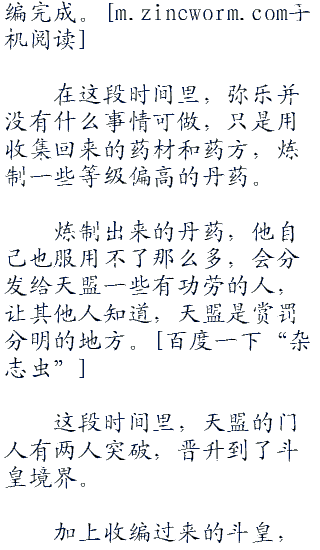 编完成。[m.zincworm.com手
机阅读]
在这段时间里，弥乐并
没有什么事情可做，只是用
收集回来的药材和药方，炼
制一些等级偏高的丹药。
炼制出来的丹药，他自
己也服用不了那么多，会分
发给天盟一些有功劳的人，
让其他人知道，天盟是赏罚
分明的地方。[百度一下“杂
志虫”]
这段时间里，天盟的门
人有两人突破，晋升到了斗
皇境界。
加上收编过来的斗皇，